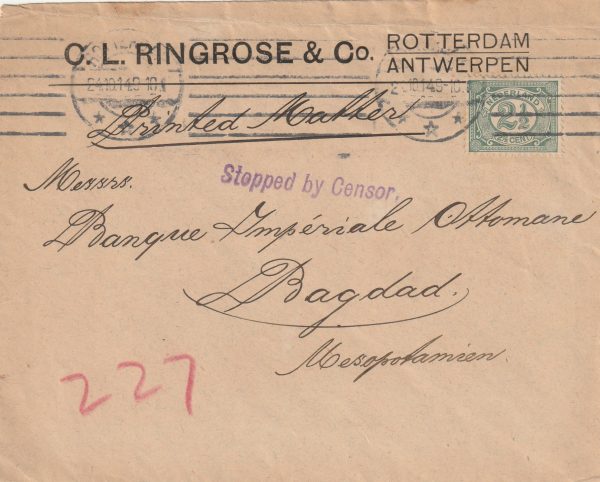 C. L. RINGROSE & Co.
ROTTERDAM
ANTWERPEN
24.10.14
NEDERLAND
2½
CENT
Printed Matter
Stopped by Censor.
Messrs.
Banque Impériale Ottomane
Bagdad.
Mesopotamien.
227